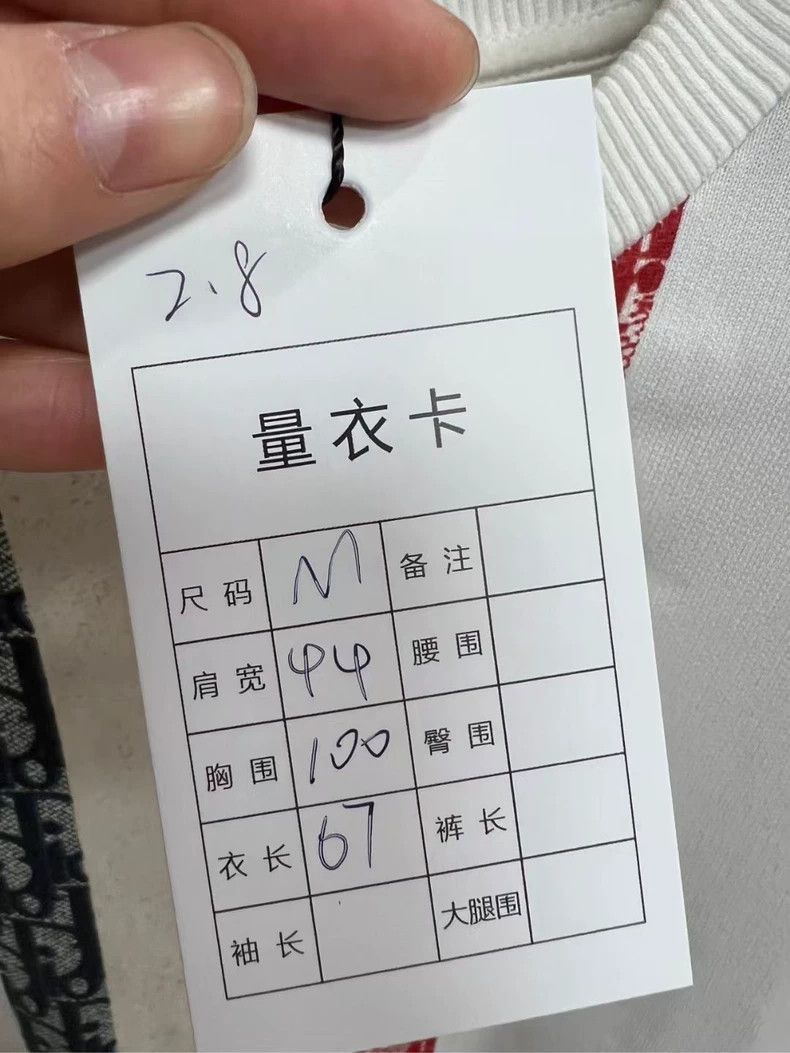 2.8
量衣卡
尺码 M 备注
肩宽 44 腰围
胸围 100 臀围
衣长 67 裤长
袖长 大腿围